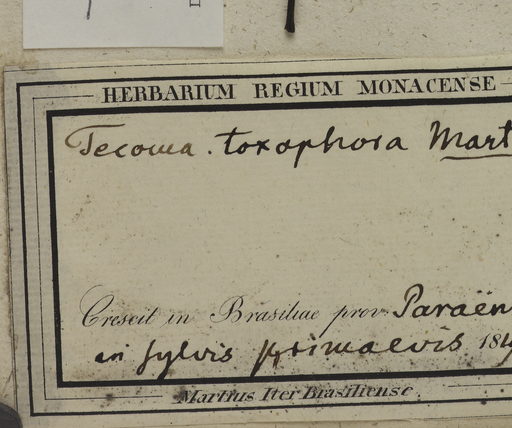 HERBARIUM REGIUM MONACENSE
Tecoma . toxophora Mart
Crescit in Brasiliae prov. Paraën
in sylvis primaevis 181
Martius Iter Brasiliense.